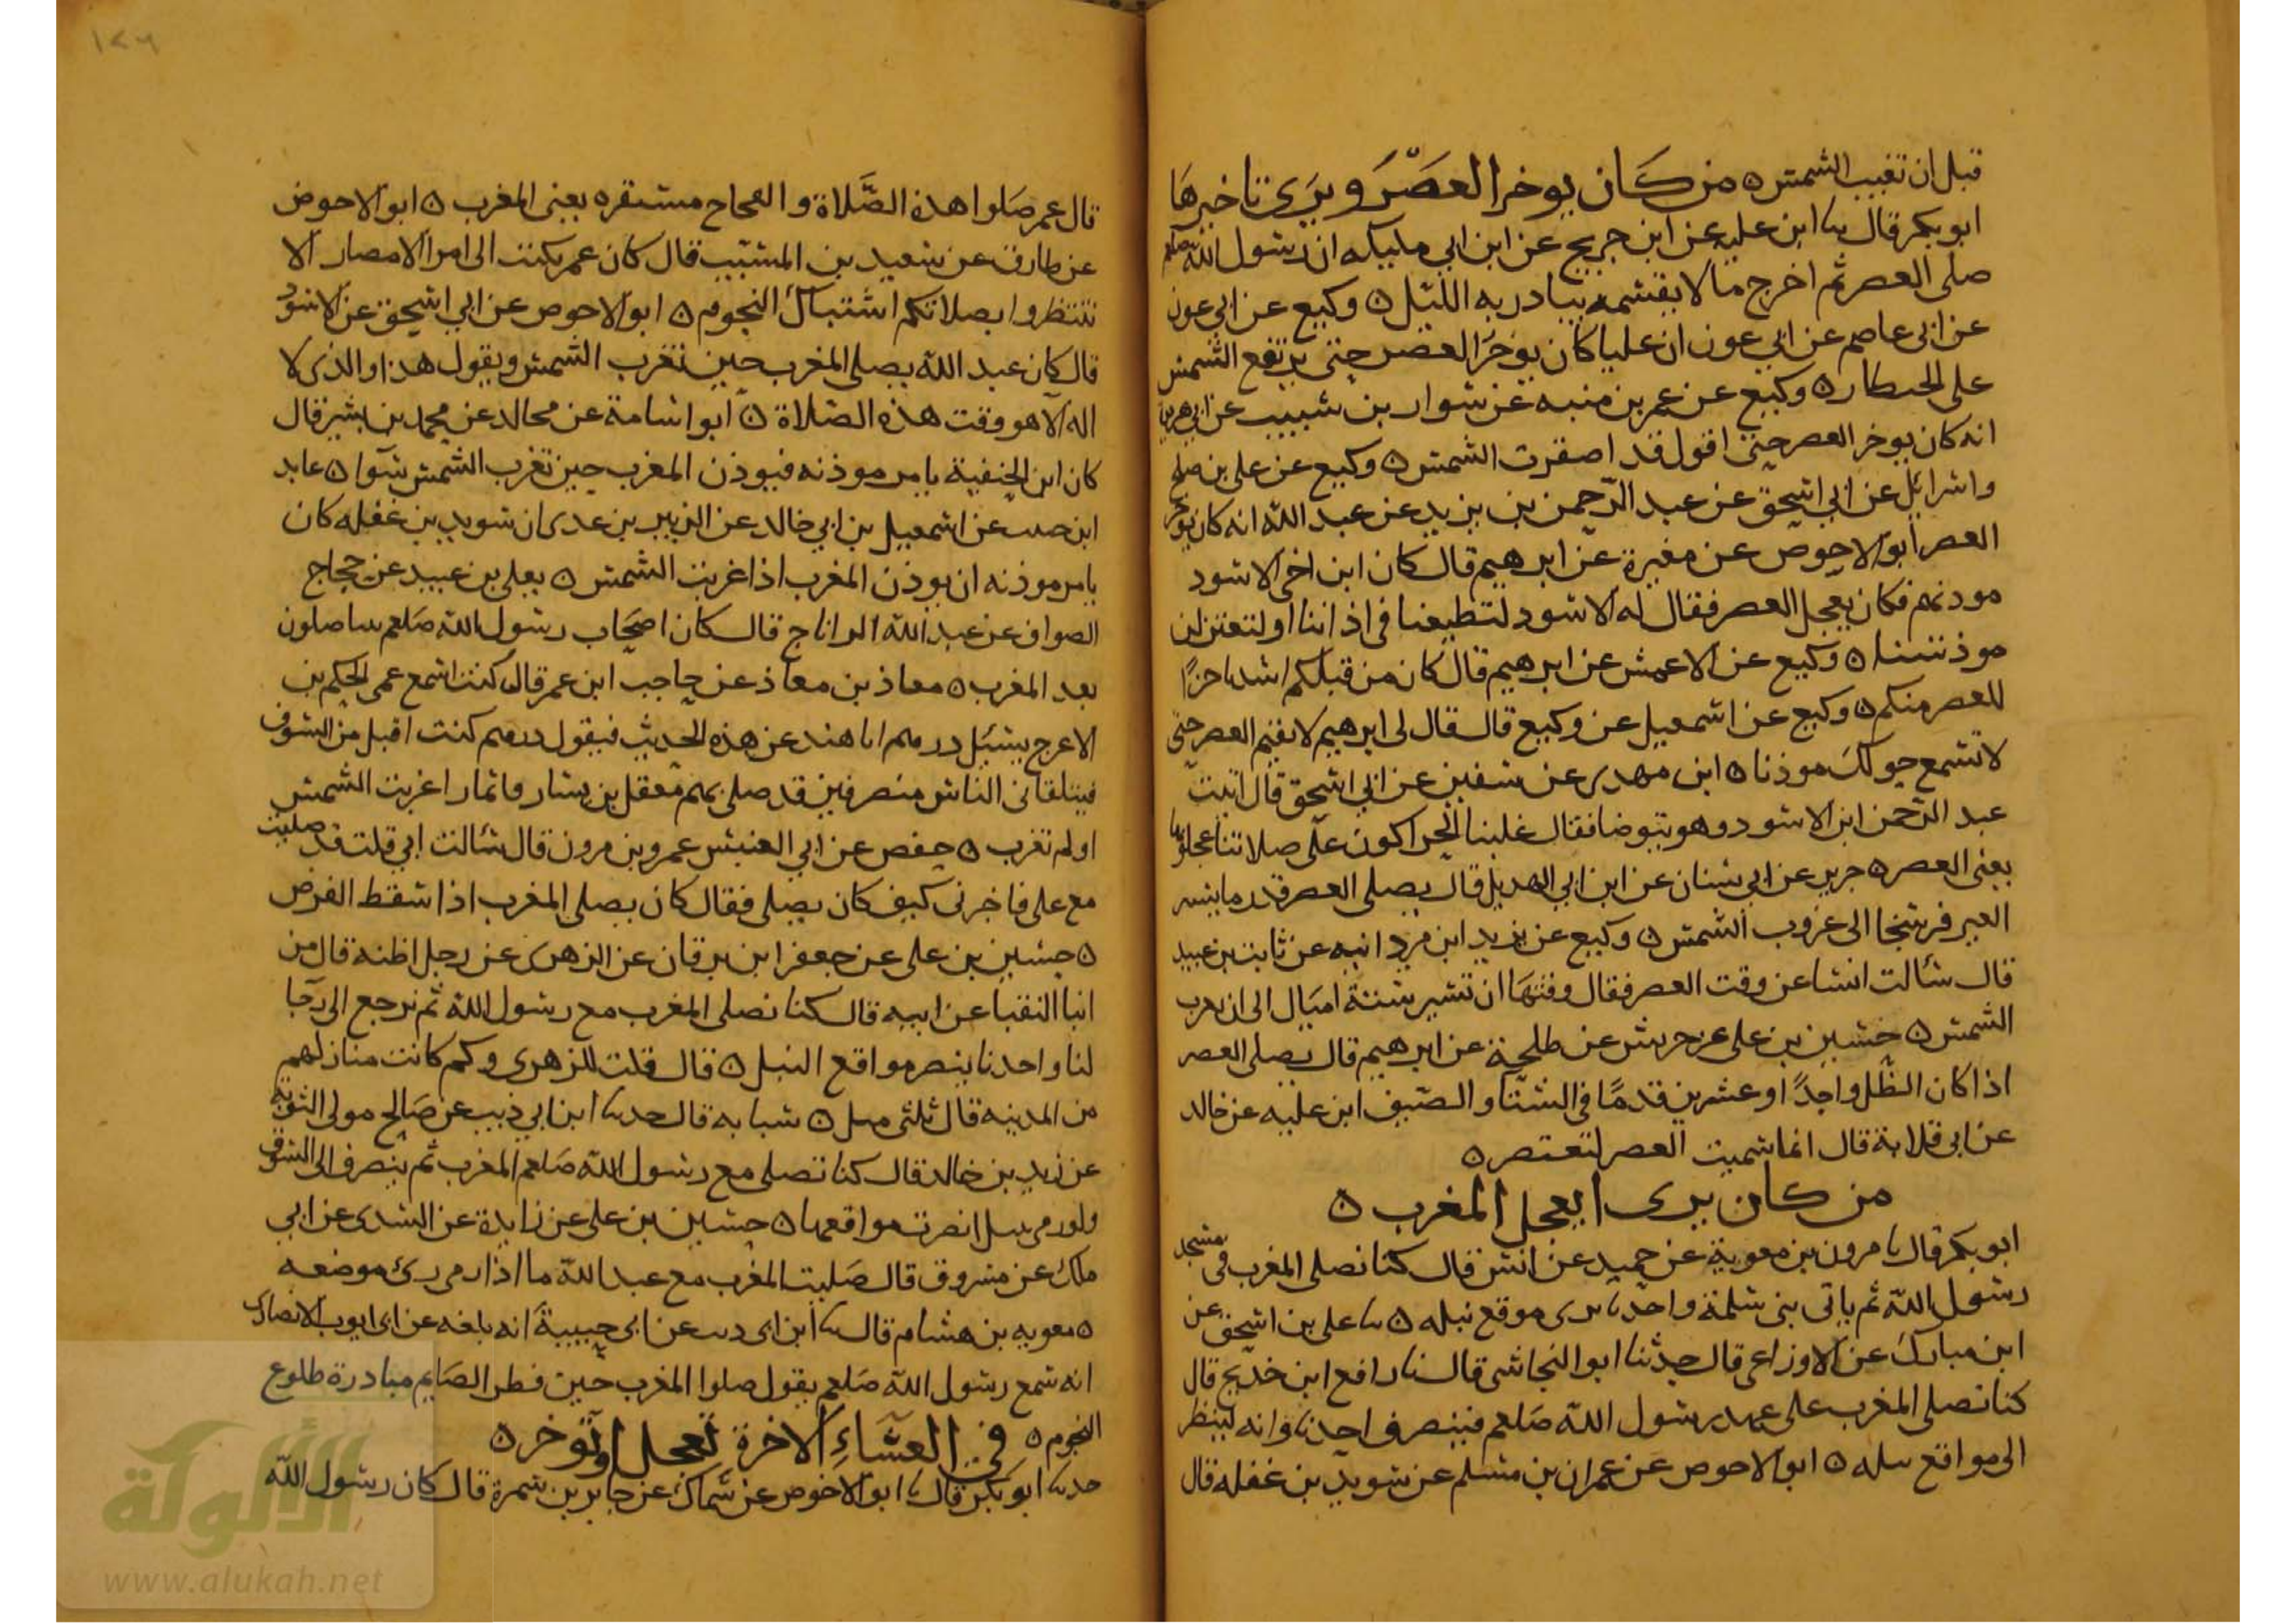 قبل ان تغيب الشمس ە من كان يوخر العصر ويرى تاخيرها
ابو بكر قال سا ابن عليه عن ابن جريج عن ابن ابي مليكه ان رسول الله صلعم
صلى العصر ثم اخرج مالا يقسمه يبادر به الليل ە وكيع عن ابي عون
عن ابي عاصم عن ابي عون ان عليا كان يوخر العصر حتى يرتفع الشمس
على الحيطار ە وكيع عن عمر بن منبه عن سوار بن شبيب عن ابي هريرة
انه كان يوخر العصر حتى اقول قد اصفرت الشمس ە وكيع عن علي بن صلح
واسرائل عن ابي اسحق عن عبد الرحمن بن يزيد عن عبد الله انه كان يوخر
العصر ابو الاحوص عن مغيرة عن ابرهيم قال كان ابن اخي الاسود
موذنهم فكان يعجل العصر فقال له الاسود لتطيعنا في اذاننا او لتعتزلن
موذنتنا ە وكيع عن الاعمش عن ابرهيم قال كان من قبلكم اشد اخرا
للعصر منكم ە وكيع عن اسمعيل عن وكيع قال قال لي ابرهيم لا تقيم العصر حتى
لا تسمع حولك موذنا ە ابن مهدي عن سفين عن ابي اسحق قال اتيت
عبد الرحمن ابن الاسود وهو يتوضا فقال غلبنا الحراكون على صلاتنا عجلوها
يعني العصر ە جرير عن ابي سنان عن ابن ابي الهديل قال يصلي العصر قدر ما يسر
العير فرسخا الى غروب الشمس ە وكيع عن يزيد ابن مردانبه عن ثابت بن عبيد
قال سالت انسا عن وقت العصر فقال وقتها ان تسير ستة اميال الى ان تغرب
الشمس ە حسين بن علي عن حريش عن طلحة عن ابرهيم قال يصلى العصر
اذا كان الظل واحدا وعشرين قدما في الشتا والصيف ابن عليه عن خالد
عن ابي قلابة قال انما سميت العصر لتعتصر ە
من كان يرى ايعجل المغرب ە
ابو بكر قال سا مرون بن معوية عن حميد عن انس قال كنا نصلى المغرب في مسجد
رسول الله ثم ياتي بني سلمة واحدنا يرى موقع نبله ە سا علي بن اسحق عن
ابن مبارك عن الاوزاعي قال حدثنا ابو النجاشى قال سنا رافع ابن خديج قال
كنا نصلى المغرب على عهد رسول الله صلعم فينصرف احدنا وانه لينظر
الى مواقع نبله ە ابو الاحوص عن عمران بن مسلم عن سويد بن غفله قال
١٢٦
قال عمر صلوا هذه الصلاة والفجاح مستقره يعني المغرب ە ابو الاحوص
عن طارق عن سعيد بن المسيب قال كان عمر يكتب الى امرا الامصار الا
تنتظروا بصلاتكم اشتباك النجوم ە ابو الاحوص عن ابي اسحق عن الاسود
قال كان عبد الله يصلى المغرب حين تغرب الشمس ويقول هذا والذى لا
اله الا هو وقت هذه الصلاة ە ابو اسامة عن مجالد عن محمد بن بشير قال
كان ابن الحنفية يامر موذنه فيوذن المغرب حين تغرب الشمس سوا ە عابد
ابن حبيب عن اسمعيل بن ابي خالد عن الزبير بن عدى ان سويد بن غفله كان
يامر موذنه ان يوذن المغرب اذا غربت الشمس ە يعلى بن عبيد عن حجاج
الصواف عن عبد الله الداناج قال كان اصحاب رسول الله صلعم يصلون
بعد المغرب ە معاذ بن معاذ عن حاجب ابن عمر قال كنت اسمع عمى الحكم بن
الاعرج يسئل درهم ابا هند عن هذه الحديث فيقول درهم كنت اقبل من السوق
فيتلقاني الناس منصرفين قد صلى بهم معقل بن يسار فاتمارا غربت الشمس
اولم تغرب ە حفص عن ابي العنبس عمرو بن مرون قال سالت ابي قلت قد صليت
مع علي فاخبرني كيف كان يصلي فقال كان يصلي المغرب اذا سقط القرص
ە حسين بن علي عن جعفر ابن برقان عن الزهرى عن رجل اظنه قال من
ابنا النقبا عن ابيه قال كنا نصلى المغرب مع رسول الله ثم نرجع الى رحا
لنا واحدنا ينصر مواقع النبل ە قال قلت للزهرى وكم كانت منازلهم
من المدينه قال ثلثى ميل ە شبابه قال حدثنا ابن ابي ذيب عن صالح مولى التوءمة
عن زيد بن خالد قال كنا نصلى مع رسول الله صلعم المغرب ثم ينصرف الى السوق
ولو رمى بنبل ابصرت مواقعها ە حسين بن علي عن زايدة عن السدى عن ابي
ملك عن مسروق قال صليت المغرب مع عبد الله ما اذا رمى رئ موضعه
ە معويه بن هشام قال سا ابن ابى ذيب عن ابي حبيبة انه بلغه عن ابى ايوب الانصارى
انه سمع رسول الله صلعم يقول صلوا المغرب حين فطر الصايم مبادرة طلوع
النجوم ە في العشاء الاخرة تعجل او توخر ە
حدثنا ابو بكر قال سا ابو الاحوص عن سماك عن جابر بن سمرة قال كان رسول الله
الألوكة
www.alukah.net